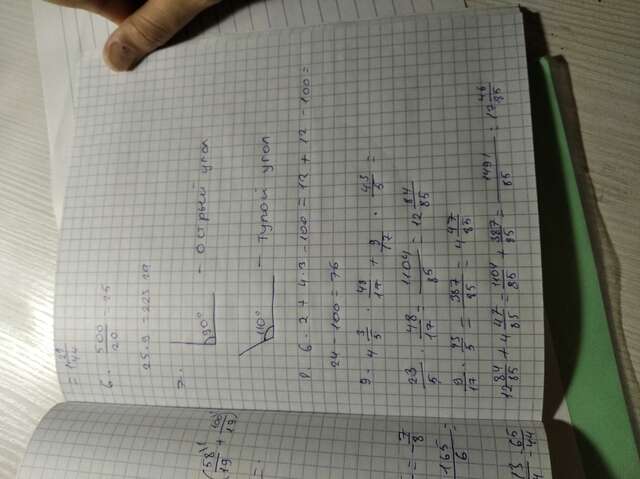 6. 500/20 = 25
25 · 9 = 225 га
7. 90° - острый угол
110° - тупой угол
8. 6 · 2 + 4 · 3 - 100 = 12 + 12 - 100 =
24 - 100 = 76
9. 4 3/5 · 48/17 + 9/17 · 43/5 =
23/5 · 48/17 = 1104/85 = 12 84/85
9/17 · 43/5 = 387/85 = 4 47/85
12 84/85 + 4 47/85 = 1104/85 + 387/85 = 1491/85 = 17 46/85